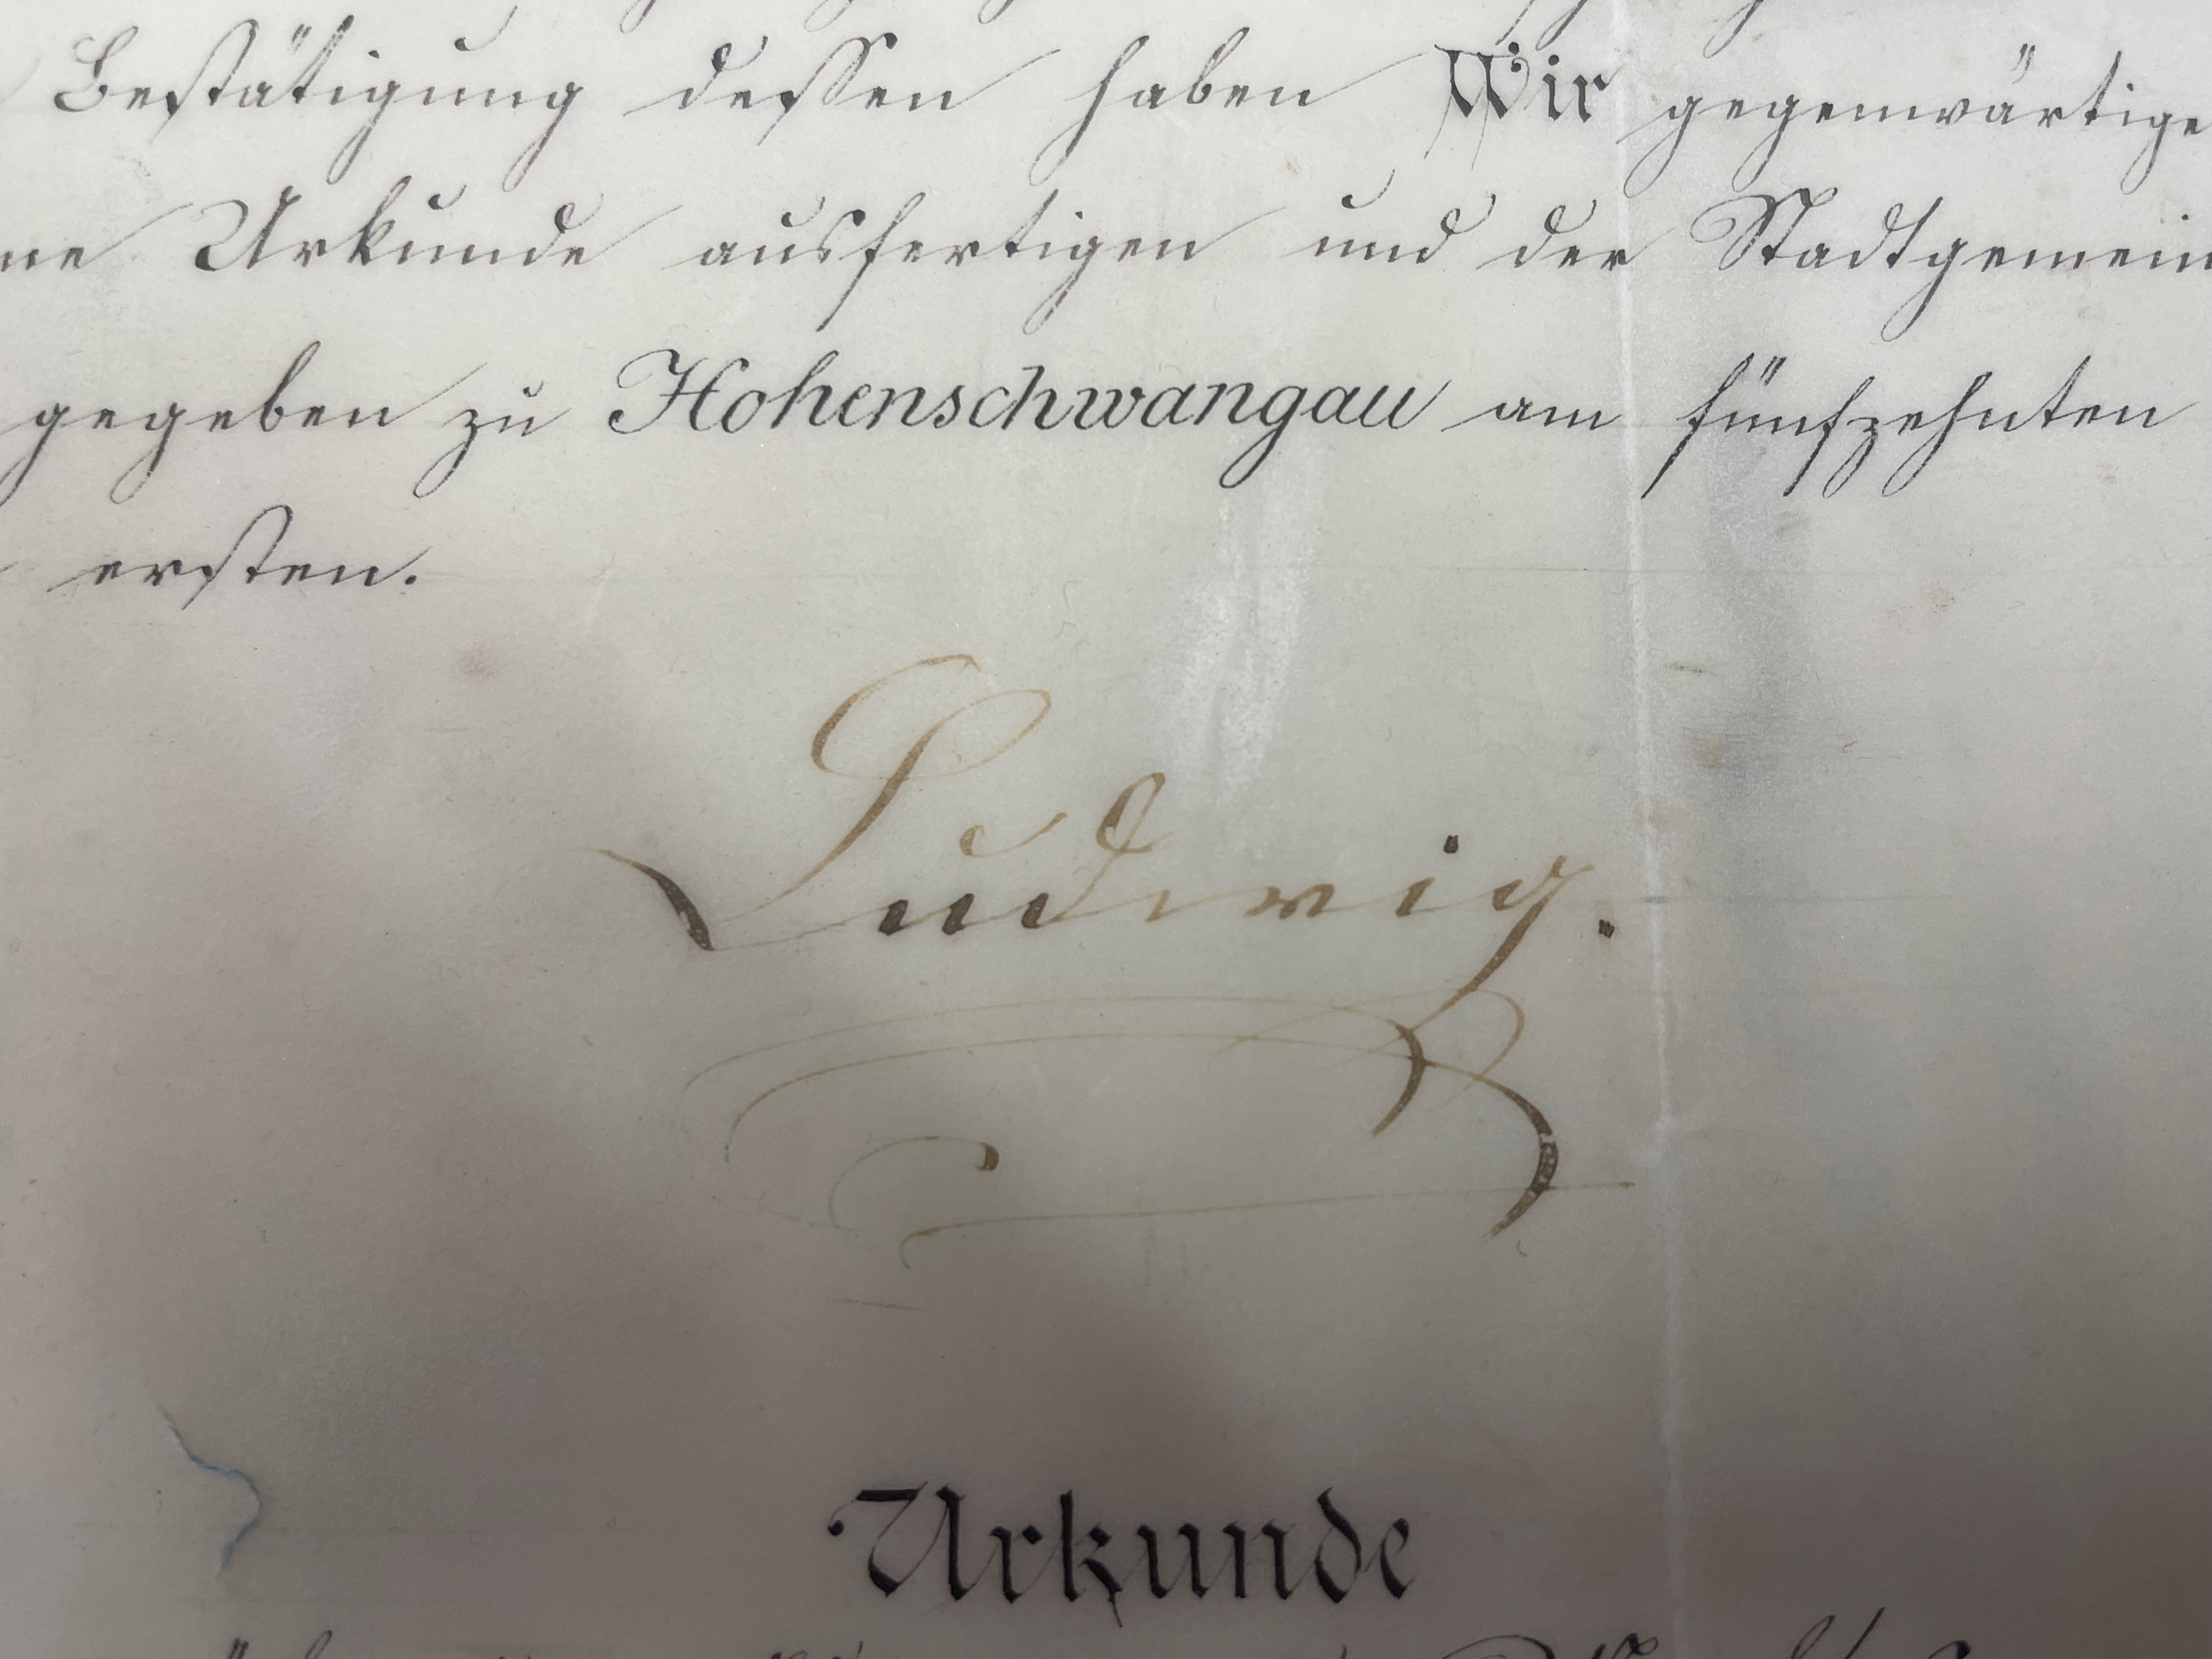 Bestätigung dessen haben Wir gegenwärtige
ne Urkunde ausfertigen und der Stadtgemein
gegeben zu Hohenschwangau am fünfzehnten
ersten.
Ludwig.
Urkunde